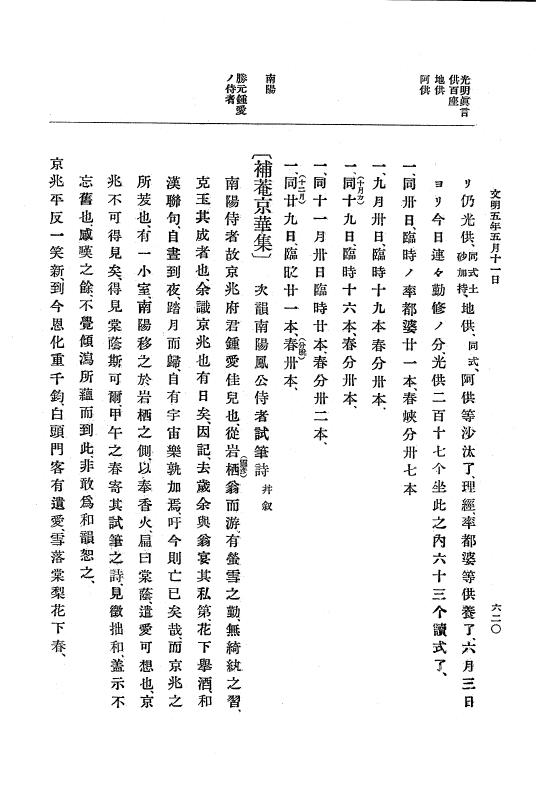 文明五年五月十一日
六二〇
光明眞言
供百座
地供
阿供
南陽
勝元鍾愛
ノ侍者
リ、仍光供、同式土砂加持、地供、同式、阿供等沙汰了、理經、率都婆等供養了、六月三日
ヨリ今日連々勤修ノ分光供二百十七个坐此之內六十三个讀式了、
一、同卅日、臨時ノ率都婆廿一本、春峽分卅七本
一、九月卅日、臨時十九本春分卅本、
一、同十九日、臨時十六本、春分卅本、
(十月分)
一、同十一月卅日臨時廿本、春分卅二本、
一、同廿九日、臨時廿一本、春卅本、
(十二月)
(分脫)
〔補菴京華集〕 次韻南陽鳳公侍者試筆詩 幷叙
南陽侍者故京兆府君鍾愛佳兒也、從岩栖翁而游、有螢雪之勤、無綺紈之習、
克玉其成者也、余識京兆也有日矣、因記、去歲余與翁宴其私第、花下擧酒、和
漢聯句、自晝到夜、踏月而歸、自有宇宙樂孰加焉、吁今則亡已矣哉、而京兆之
所茇也、有一小室、南陽移之於岩栖之側、以奉香火、扁曰棠蔭、遺愛可想也、京
兆不可得見矣、得見棠蔭斯可爾、甲午之春寄其試筆之詩、見徵拙和、盖示不
忘舊也、感嘆之餘、不覺傾瀉所蘊而到此、非敢爲和韻、恕之、
京兆平反一笑新、到今恩化重千鈞、白頭門客有遺愛、雪落棠梨花下春、